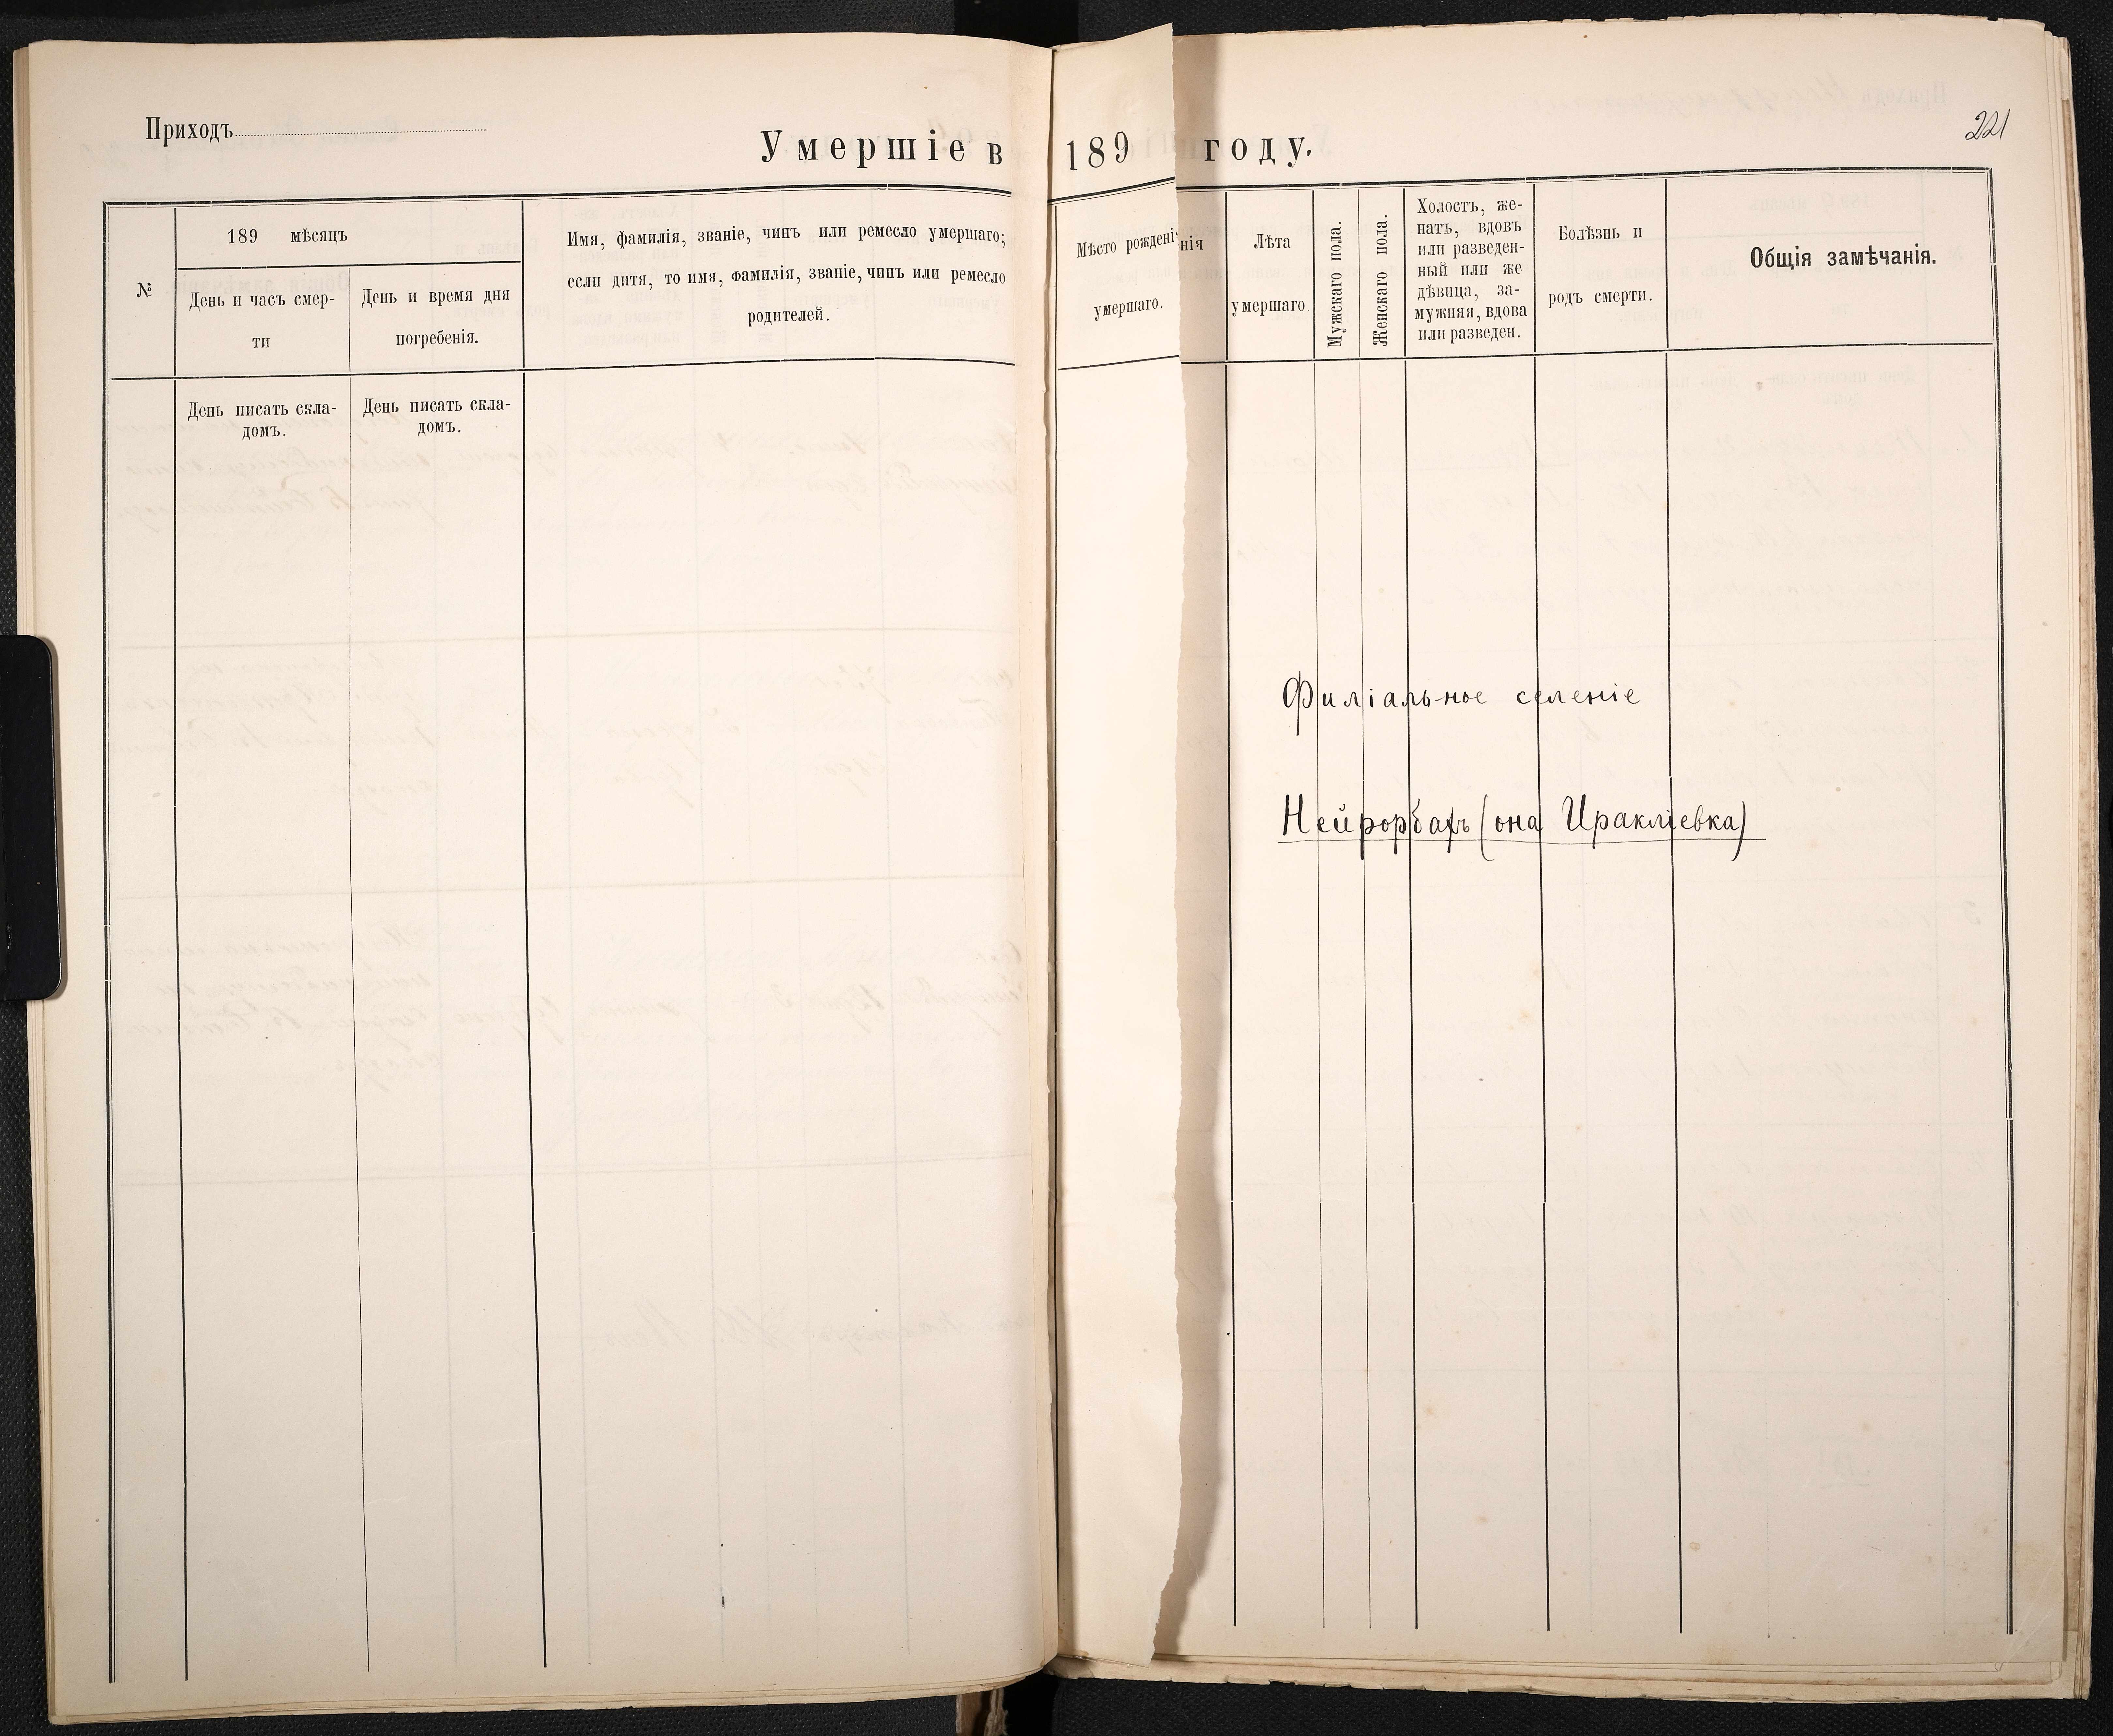 Приходъ
221
Умершіе в 189 году.
№
189 мѣсяцъ
День и часъ смер-
ти
День и время дня
погребенія.
Имя, фамилія, званіе, чинъ или ремесло умершаго;
если дитя, то имя, фамилія, званіе, чинъ или ремесло
родителей.
Мѣсто рожденi
нія
умершаго.
Лѣта
умершаго
Мужскаго пола.
Женскаго пола.
Холостъ, же-
натъ, вдовъ
или разведен-
ный или же
дѣвица, за-
мужняя, вдова
или разведен.
Болѣзнь и
родъ смерти.
Общія замѣчанія.
День писать скла-
домъ.
День писать скла-
домъ.
Филіальное селеніе
(она Иракліевка)